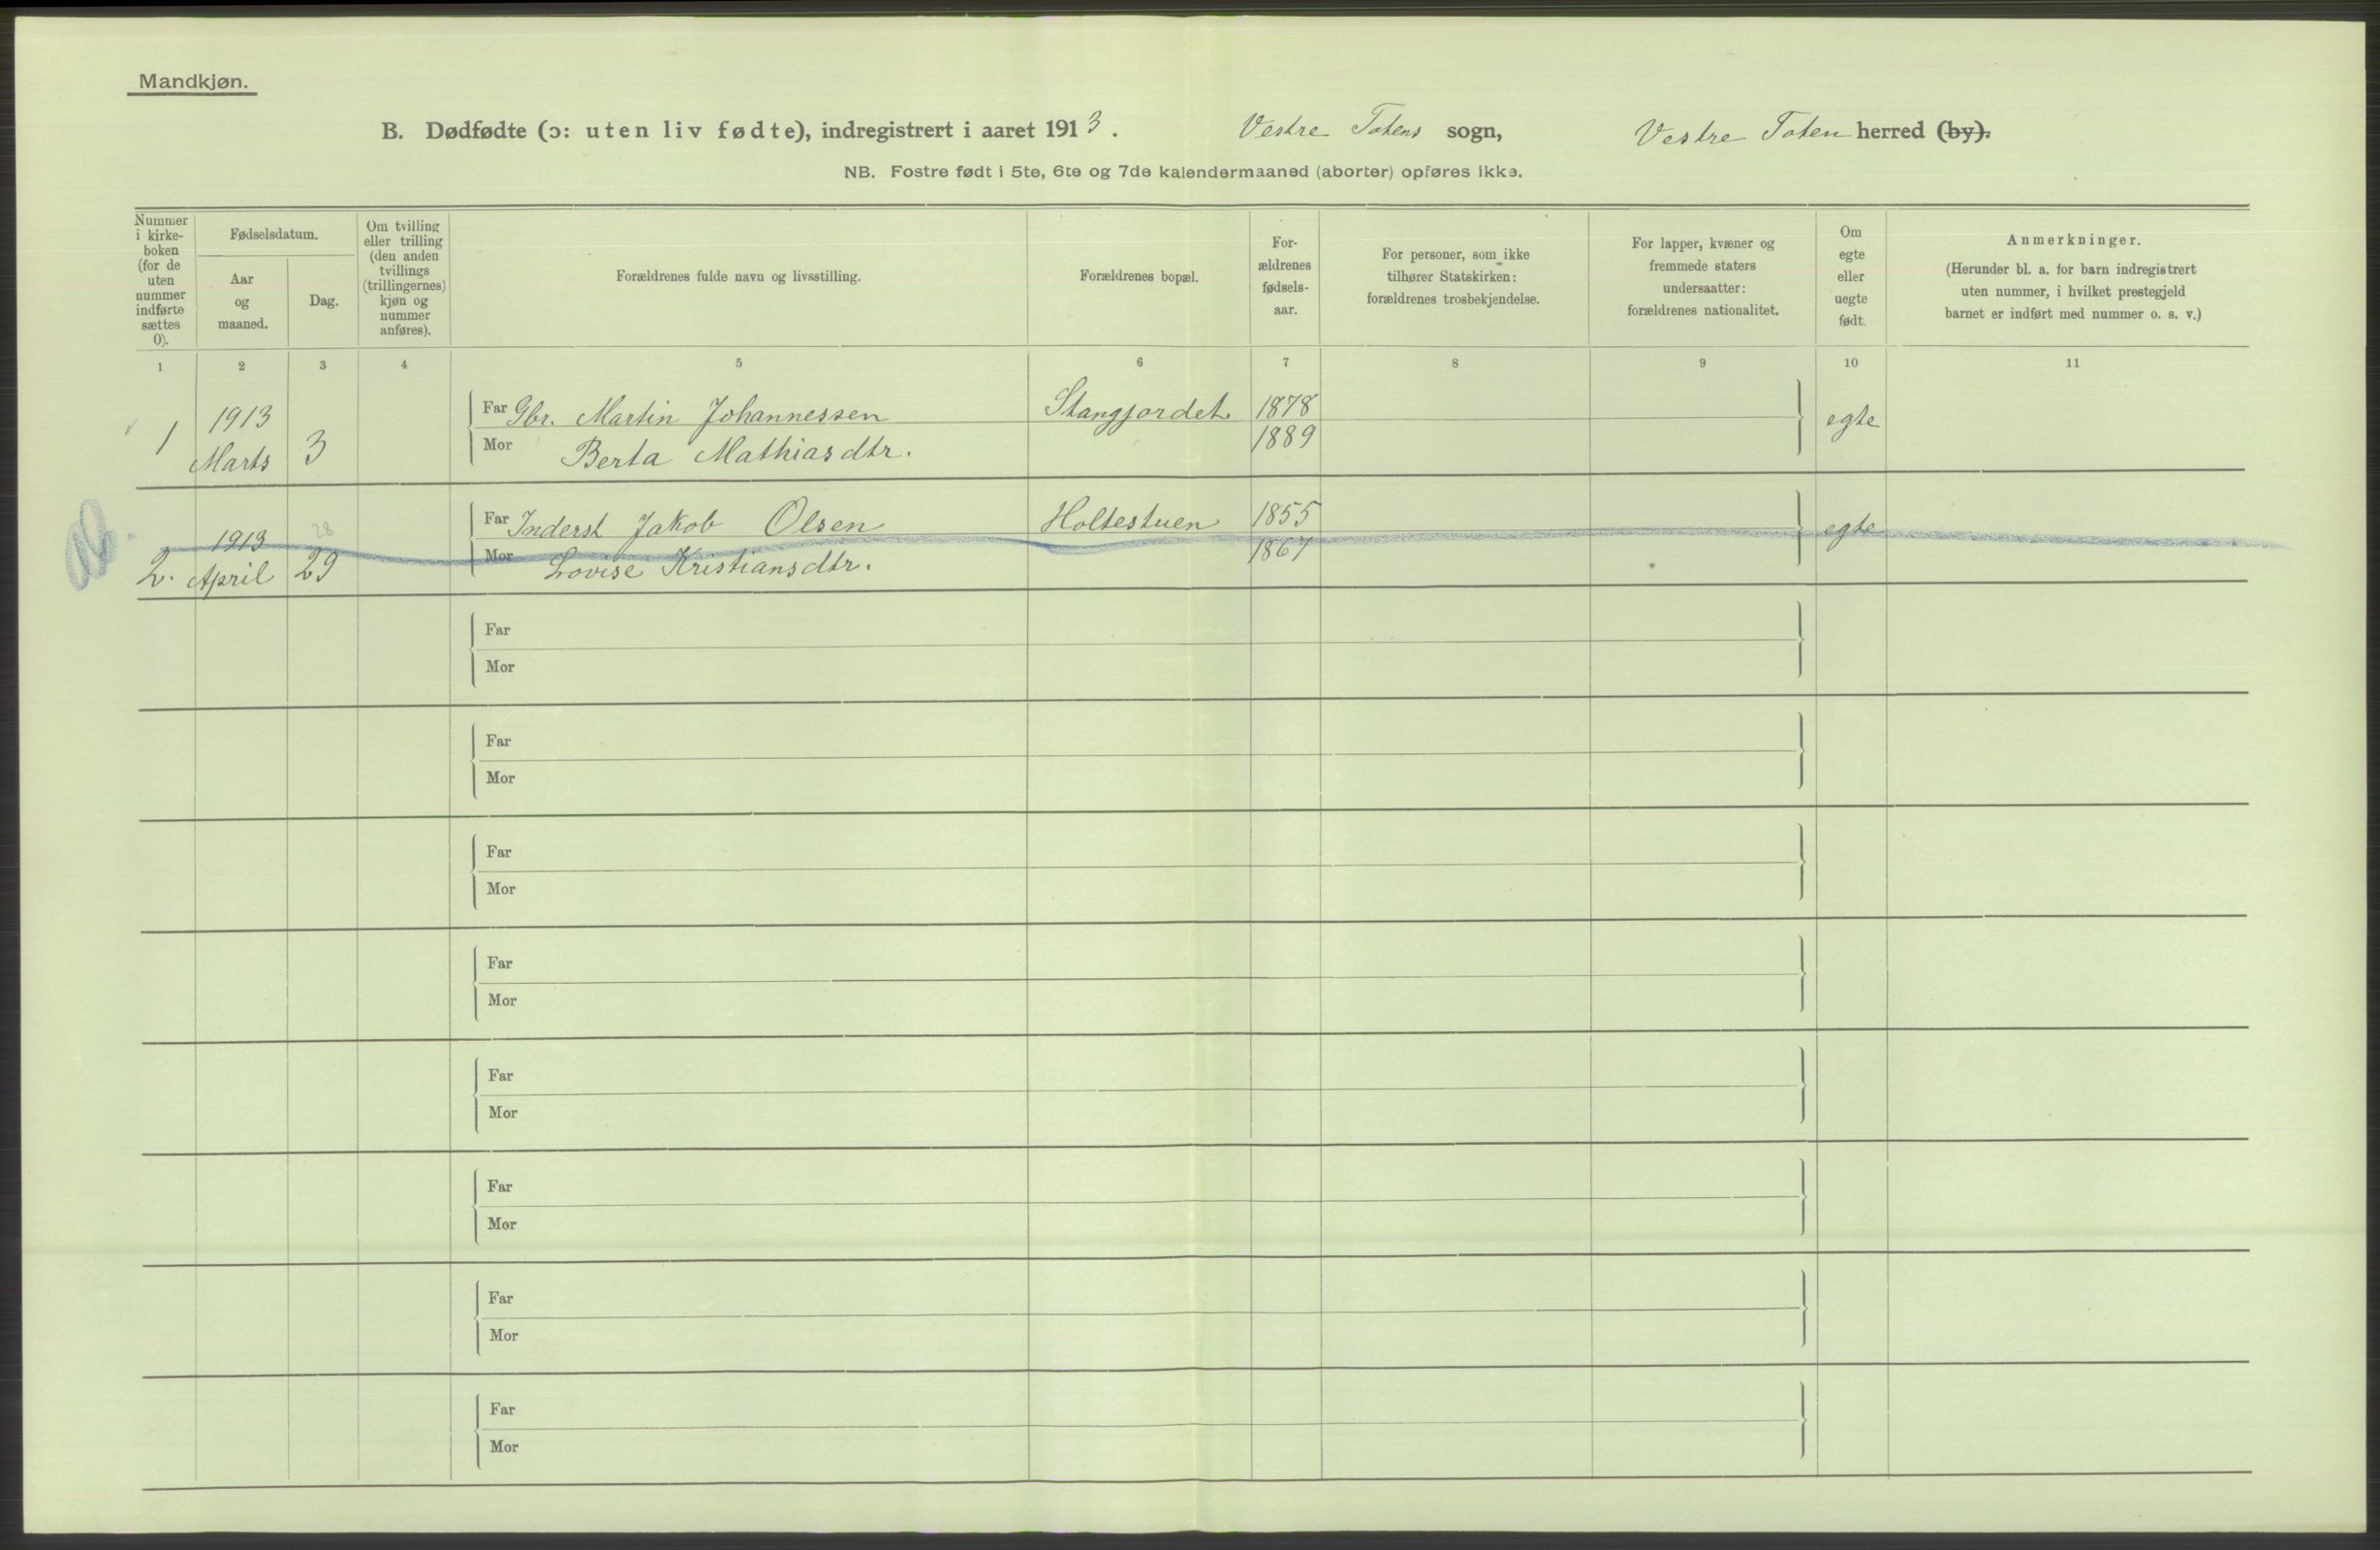 Mandkjøn.
B. Dødfødte (ɔ: uten liv fødte), indregistrert i aaret 1913. Vestre Totens sogn, Vestre Toten herred (by).
NB. Fostre født i 5te, 6te og 7de kalendermaaned (aborter) opføres ikke.
Nummer
i kirke-
boken
(for de
uten
nummer
indførte
sættes
0).
Fødselsdatum.
Aar
og
maaned.
Dag.
Om tvilling
eller trilling
(den anden
tvillings
(trillingernes)
kjøn og
nummer
anføres).
Forældrenes fulde navn og livsstilling.
Forældrenes bopæl.
For-
ældrenes
fødsels-
aar.
For personer, som ikke
tilhører Statskirken:
forældrenes trosbekjendelse.
For lapper, kvæner og
fremmede staters
undersaatter:
forældrenes nationalitet.
Om
egte
eller
uegte
født.
Anmerkninger.
(Herunder bl. a. for barn indregistrert
uten nummer, i hvilket prestegjeld
barnet er indført med nummer o. s. v.)
1 2 3 4 5 6 7 8 9 10 11
1 1913 Marts 3
Far Gbr. Martin Johannessen Stangjordet 1878 egte
Mor Berta Mathiasdtr. 1889
2. 1913 April 28 29
Far Inderst Jakob Olsen Holtestuen 1855 egte
Mor Lovise Kristiansdtr. 1867
Far
Mor
Far
Mor
Far
Mor
Far
Mor
Far
Mor
Far
Mor
Far
Mor
Far
Mor